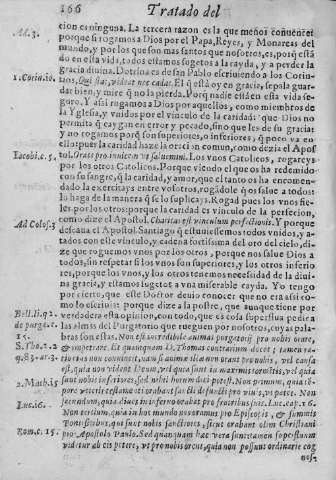 166 Tratado del
Ad. 3. cion es ninguna. La tercera razon es la que menos conuence:
porque si rogamos a Dios por el Papa, Reyes, y Monarcas del
mundo, y por los que son mas santos que nosotros, es, porq̃ está
do en esta vida, todos estamos sugetos a la cayda, y a perder la
1. Corin. 10. gracia diuina. Dotrina es de san Pablo escriuiendo a los Corin-
tios. Qui stat, videat ne cadat. El q̃ està oy en gracia, sepala guar
dar bien, y mire q̃ no la pierda. Porq̃ nadie està en esta vida se-
guro. Y assi rogamos a Dios por aquellos, como miembros de
la Yglesia, y vnidos por el vinculo de la caridad: que Dios no
permita q̃ caygan en error y pecado, sino que les de su gracia:
y no rogamos porq̃ son superiores, o inferiores, q̃ poco va en
ello: pues la caridad haze la oracion comun, como dezia el Apos
Iacobi. c. 5. tol. Orate pro inuicem vt saluemini. Los vnos Catolicos, rogareys
por los otros Catolicos. Porque viendo el que os ha redemido
con su sangre, q̃ la caridad, y amor, que el tanto os ha encomen-
dado la exercitays entre vosotros, rogãdole q̃ os salue a todos:
lo haga de la manera q̃ se lo suplicays. Rogad pues los vnos fie-
les por los otros: porque la caridad es vinculo de la perfecion,
Ad Colos. 3 como dize el Apostol. Charitas est vinculum perfectionis. Y porque
desseaua el Apostol Santiago q̃ estuuiessemos todos vnidos, y a-
tados con este vinculo, y cadena fortissima del oro del cielo, di-
ze que roguemos vnos por los otros, porque nos salue Dios a
todos, sin respetar si los vnos son superiores, y los otros inferio
res, porque los vnos, y los otros tenemos necessidad de la diui-
na gracia, y estamos sugetos a vna miserable cayda. Yo tengo
por cierto, que este Doctor deuio conocer que no era assi co-
mo lo escriuio: porque dize a la postre, que aunque tiene por
Bell. li. 2. verdadera esta opinion, con todo, que es cosa superflua pedir a
de purga. c. las almas del Purgatorio que rueguen por nosotros, cuyas pala-
15. bras son estas. Non est incredibile animas purgatorij pro nobis orare,
S. Tho. 2. 2 & impetrare. Et quamquam D. Thomas contrarium docet; tamen ra-
q. 83. ar. 3. tio eius non conuincit, nam si animæ illæ non orant pro nobis, vel causa
est, quia non vident Deum, vel quia sunt in maximis tormentis, vel quia
2. Mach. 15 sunt nobis inferiores, sed nihil horum dici potest. Non primum, quia
veteris testamenti orabant sancti defuncti pro viuis, patet. Non
Luc. 16. secundum, quia diues in inferno orabat pro fratribus suis. Luc. cap. 16.
Non tertium, quia in hoc mundo nos oramus pro Episcopis, & summis
Pontificibus, qui sunt nobis sanctiores, sicut orabant olim Christiani
Rom. c. 15. pro Apostolo Paulo. Sed quamquam hæc vera sunt, tamen superfluum
videtur ab eis petere, vt pro nobis orent, quia non possunt ordinarie cog
nos-